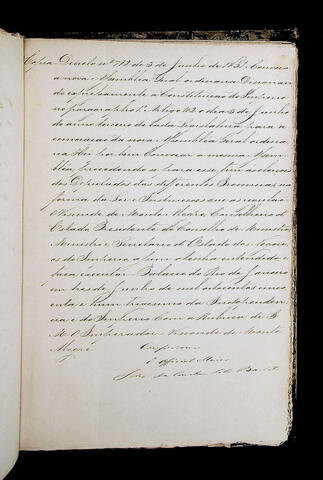 Copia Decreto nº 782 de 3 de Junho de 1851. Convoca
a nova Assembléa Geral ordinaria Determinan
do expressamente a Constituição do Imperio
no paragrapho 1º Artigo 102 o dia 3 de Junho
do anno terceiro de cada Legislatura para a
convocação da nova Assembléa Geral ordina
ria Hei por bem Convocar a mesma Assem
bléa, procedendo-se para esse fim as eleições
dos Deputados das differentes Provincias na
forma da Lei e Instrucções que as regulão
Visconde de Monte Alegre, Conselheiro d'
Estado, Presidente do Conselho de Ministros
Ministro e Secretario d'Estado dos Negocios
do Imperio assim o tenha entendido e
faça executar. Palacio do Rio de Janeiro
em tres de Junho de mil oitocentos cinco
enta e hum trigesimo da Independen
cia e do Imperio Com a Rubrica de S.
M. O Imperador Visconde de Monte
Alegre
Conforme
O Official Maior